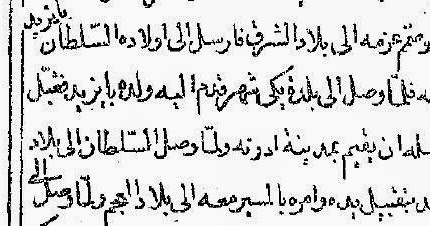 بايزيد
وصمّم عزمه الى بلاد الشرق فارسل الى اولاده السّلطان
ـه فلمّا وصل الى بلدة يكى شهر قدم اليه ولده بايزيد فقبّل
ـسله ان يقيم بمدينة ادرنه ولمّا وصل السّلطان الى بلاد
بتقبيل يده وامره بالمسير معه الى بلاد العجم ولمّا وصل
الى